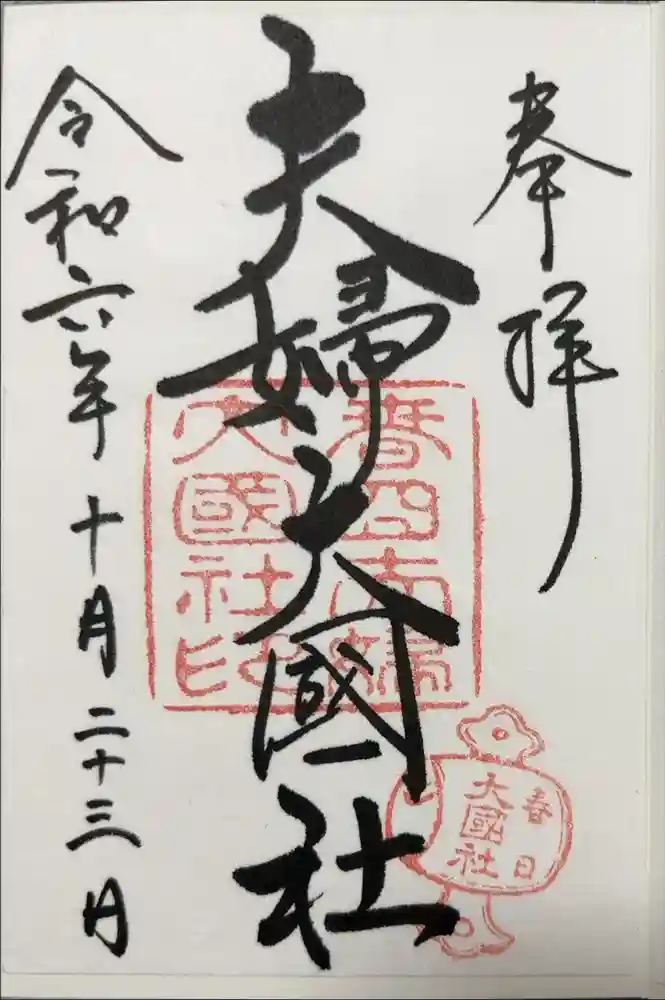 奉拝
夫婦大國社
令和六年十月二十三日
春日夫婦
大國社印
春日
大國社